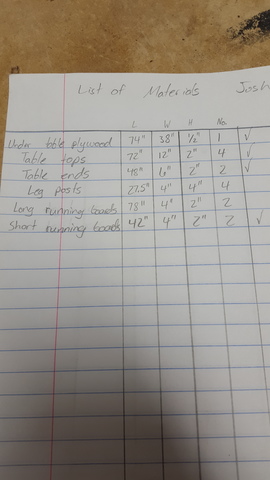 List of Materials Josh
L W H No.
Under table plywood 74" 38" 1/2" 1 ✓
Table tops 72" 12" 2" 4 ✓
Table ends 48" 6" 2" 2 ✓
Leg posts 27.5" 4" 4" 4
Long running boards 78" 4" 2" 2
Short running boards 42" 4" 2" 2 ✓